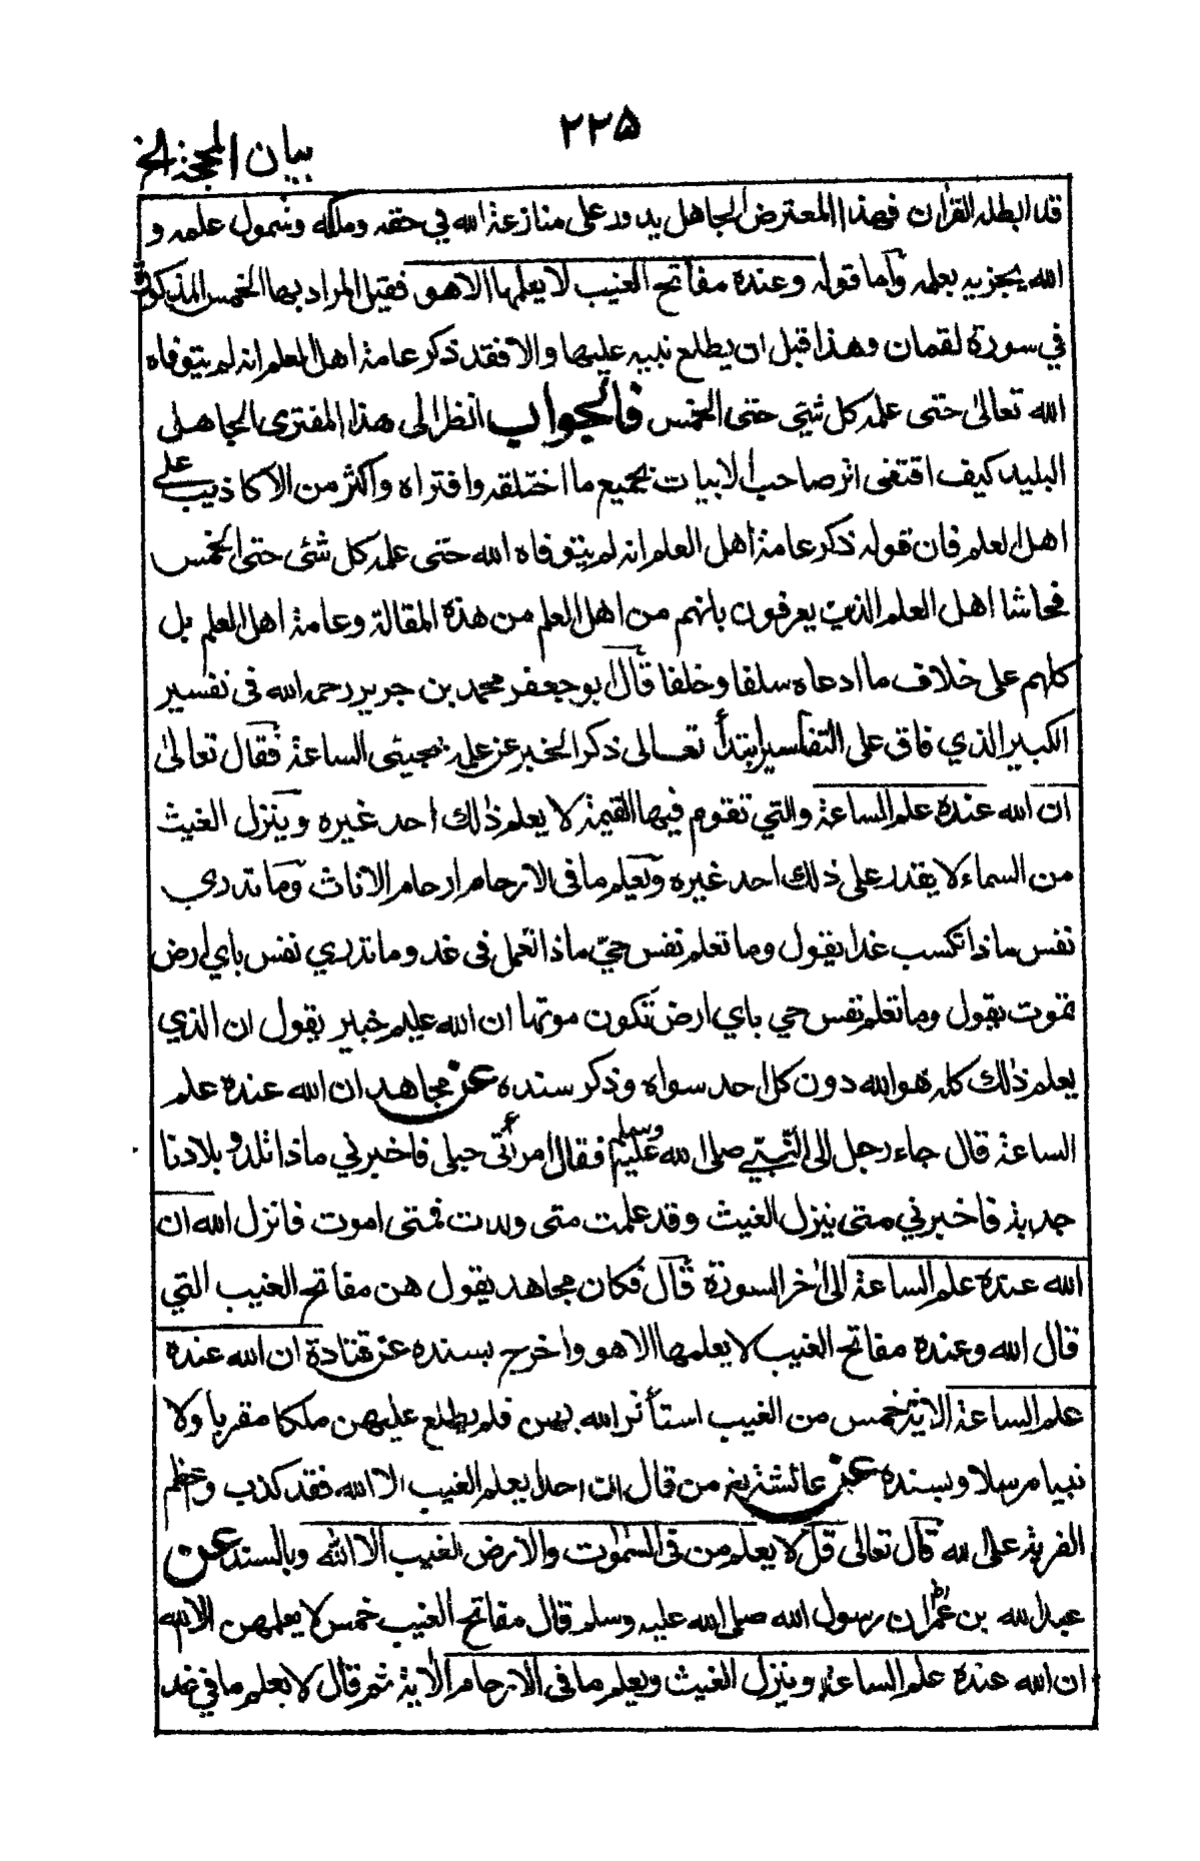 ٢٢٥
بيان المحجة الخ
قد ابطله القرآن فهذا المعترض الجاهل يدور على منازعة الله في حقه وملكه وشمول علمه و
الله يجزيه بعلمه وأما قوله وعنده مفاتح الغيب لا يعلمها الا هو فقيل المراد بها الخمس المذكورة
في سورة لقمان وهذا قبل ان يطلع نبيه عليها والا فقد ذكر عامة اهل العلم انه لم يتوفاه
الله تعالىٰ حتى علمه كل شيئ حتى الخمس فالجواب انظر الى هذا المفترى الجاهل
البليد كيف اقتفى اثر صاحب الابيات بجميع ما اختلقه وافتراه وأكثر من الاكاذيب على
اهل العلم فان قوله ذكر عامة أهل العلم انه لم يتوفاه الله حتى علمه كل شئى حتى الخمس
فحاشا اهل العلم الذين يعرفون بانهم من اهل العلم من هذه المقالة وعامة اهل العلم بل
كلهم على خلاف ما ادعاه سلفا وخلفا قال ابو جعفر محمد بن جرير رحمه الله فى تفسير
الكبير الذي فاق على التفاسير ابتدأ تعالى ذكر الخبر عن علمه بمجيئى الساعة فقال تعالىٰ
ان الله عنده علم الساعة والتي تقوم فيها القيمة لا يعلم ذٰلك احد غيره وينزل الغيث
من السماء لا يقدر على ذلك احد غيره ويعلم ما فى الارحام ارحام الاناث وما تدري
نفس ماذا تكسب غدا يقول وما تعلم نفس حيّ ماذا تعمل فى غد وما تدري نفس باي ارض
تموت يقول وما تعلم نفس حي باي ارض تكون موتها ان الله عليم خبير يقول ان الذي
يعلم ذٰلك كله هو الله دون كل احد سواه وذكر سنده عن مجاهد ان الله عنده علم
الساعة قال جاء رجل الى النّبيّ صلى الله عليه وسلم فقال امرأتى حبلى فاخبرني ماذا تلد وبلادنا
جدبة فاخبرني متى ينزل الغيث وقد علمت متى ولدت فمتى اموت فانزل الله ان
الله عنده علم الساعة الى اٰخر السورة قال فكان مجاهد يقول هن مفاتح الغيب التي
قال الله وعنده مفاتح الغيب لا يعلمها الا هو واخرج بسنده عن قتادة ان الله عنده
علم الساعة الاية خمس من الغيب استأثر الله بهن فلم يطلع عليهن ملكا مقربا ولا
نبيا مرسلا وبسنده عن عائشة من قال ان احدا يعلم الغيب الا الله فقد كذب وعظم
الفرية على الله قال تعالى قل لا يعلم من فى السمٰوٰت والارض الغيب الا الله وبالسند عن
عبد الله بن عمر ان رسول الله صلى الله عليه وسلم قال مفاتح الغيب خمس لا يعلمهن الا الله
ان الله عنده علم الساعة وينزل الغيث ويعلم ما فى الارحام الاٰية ثم قال لا يعلم ما في غد